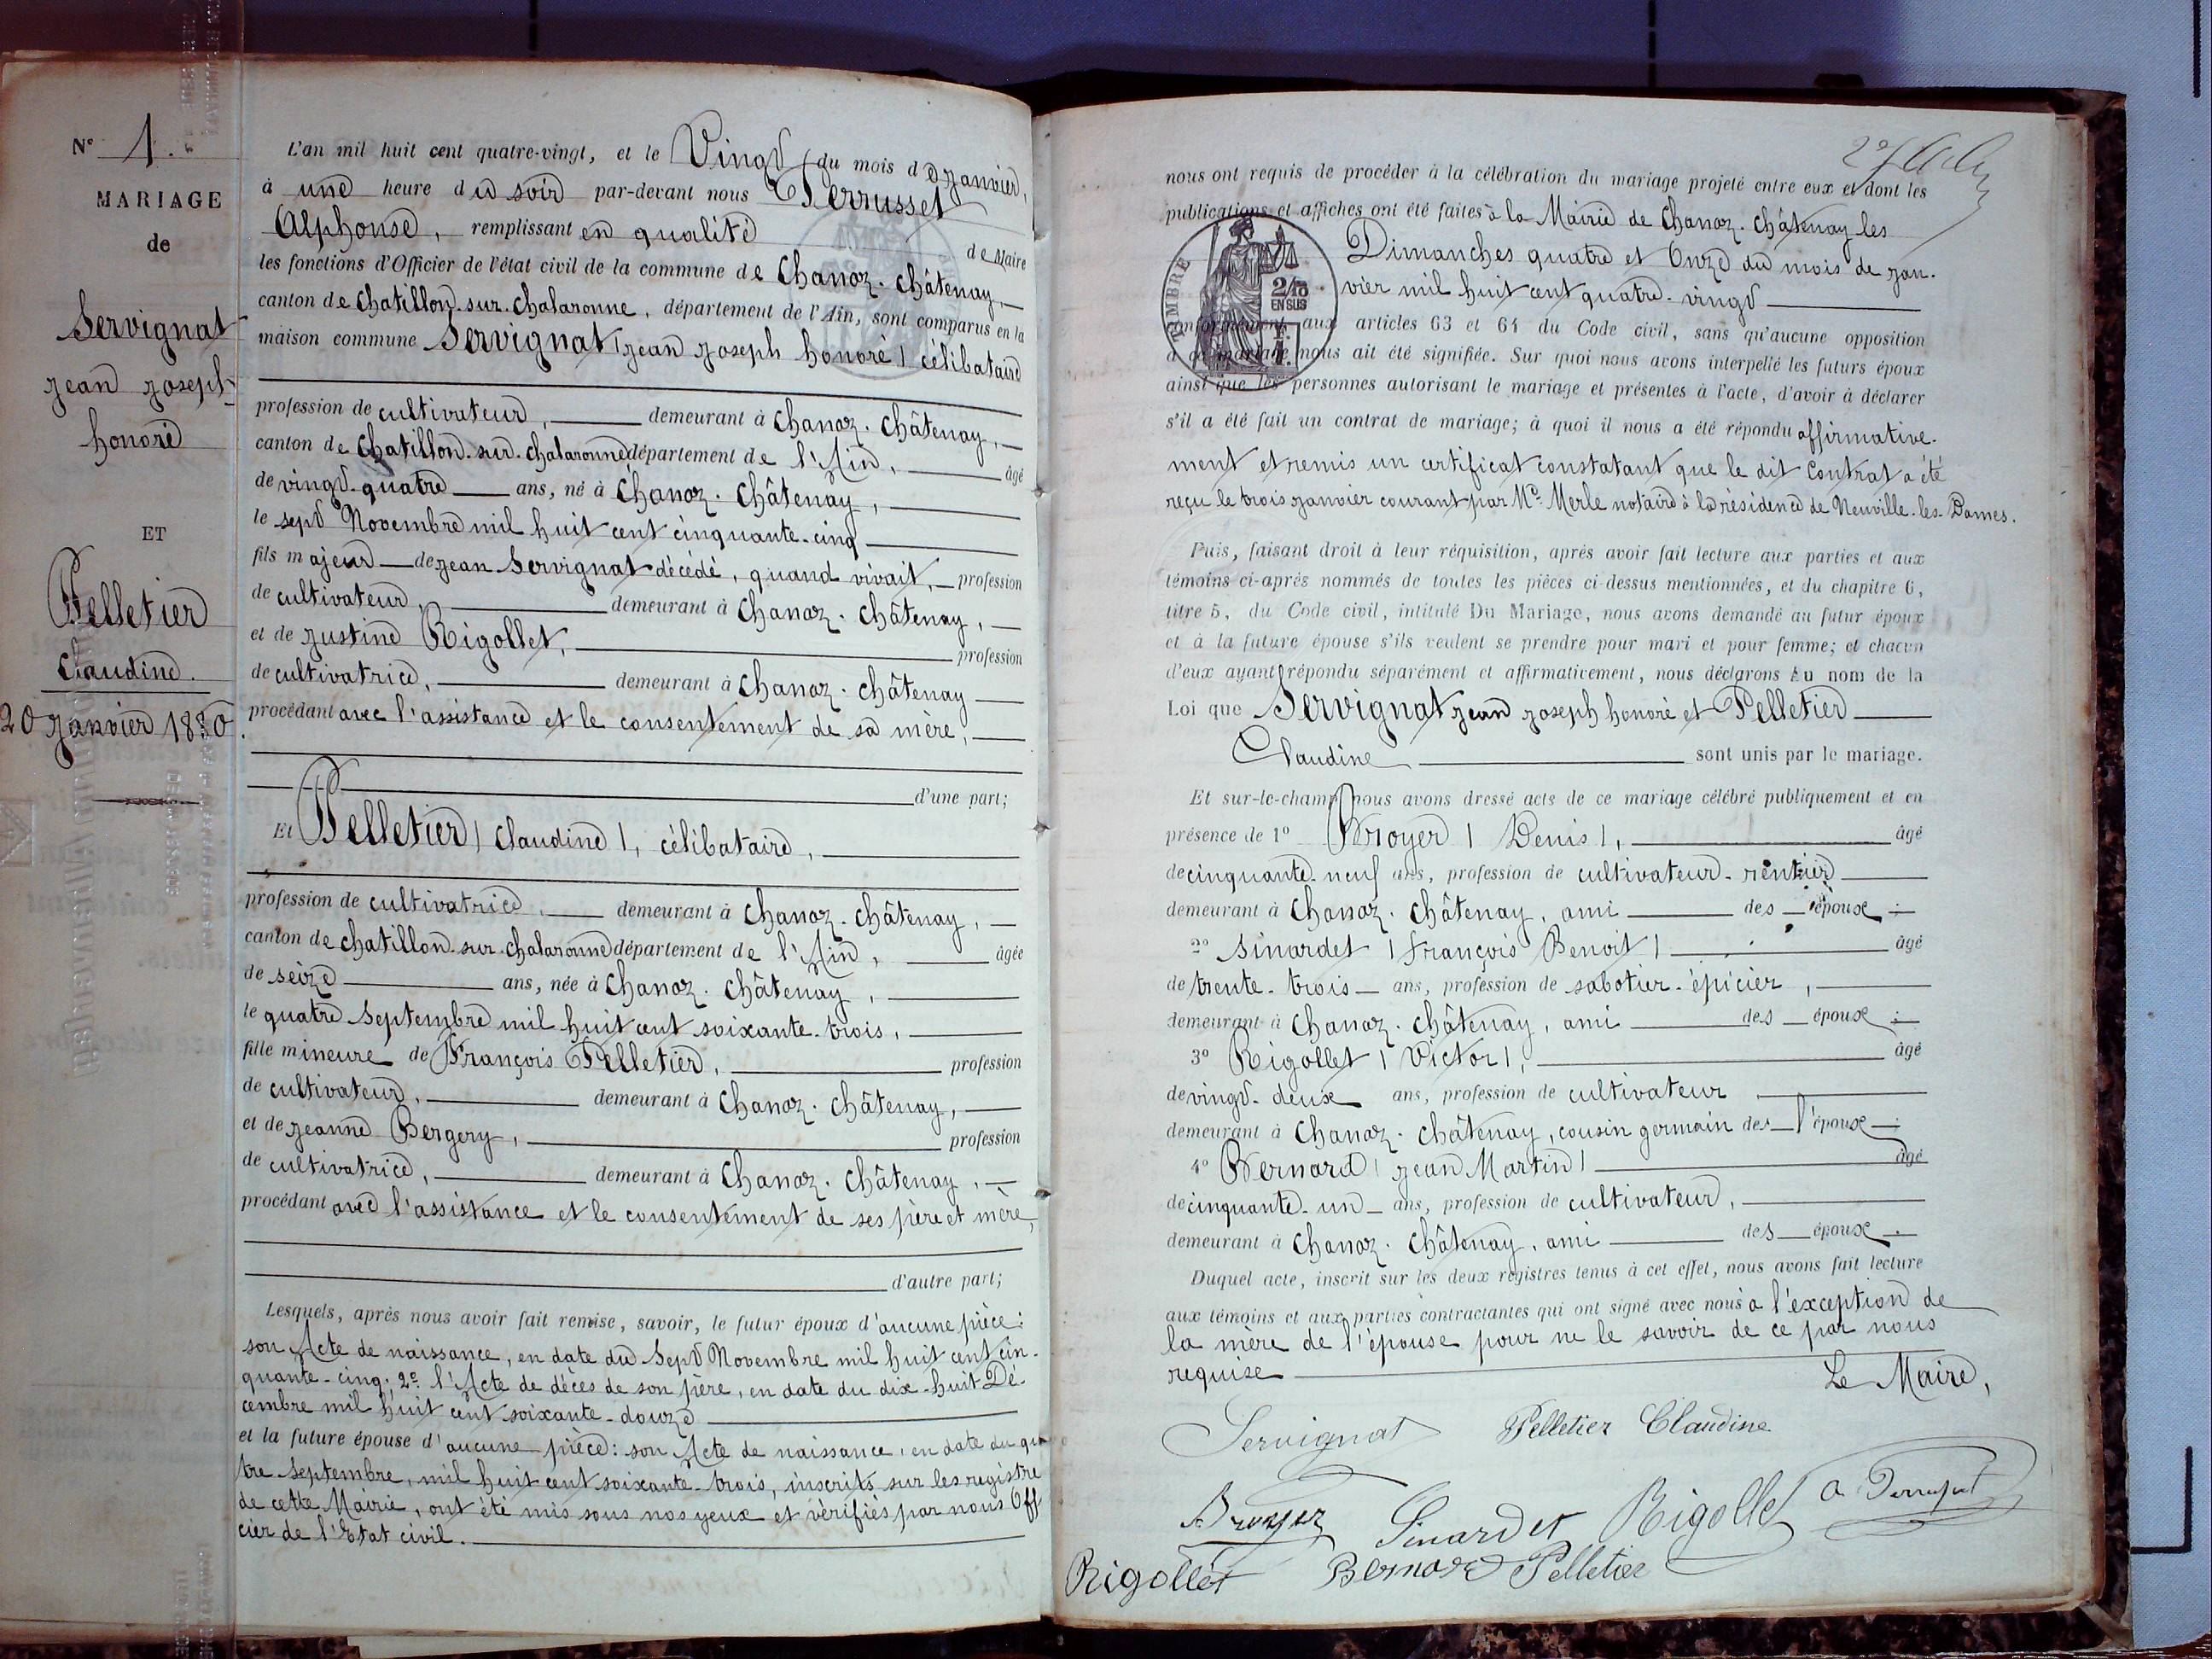 N° 1.
MARIAGE
de
Servignat
Jean Joseph
honoré
ET
Pelletier
Claudine.
20 Janvier 1880.
L'an mil huit cent quatre-vingt, et le Vingt du mois de Janvier,
à une heure du soir par-devant nous Perrusset
Alphonse, remplissant en qualité de Maire
les fonctions d'Officier de l'état civil de la commune de Chanoz-Châtenay,
canton de Chatillon-sur-Chalaronne, département de l'Ain, sont comparus en la
maison commune Servignat (Jean Joseph honoré) célibataire
profession de cultivateur, demeurant à Chanoz-Châtenay,
canton de Chatillon-sur-Chalaronne département de l'Ain, âgé
de vingt-quatre ans, né à Chanoz-Châtenay,
le sept Novembre mil huit cent cinquante-cinq
fils majeur de Jean Servignat décédé, quand vivait, profession
de cultivateur, demeurant à Chanoz-Châtenay,
et de Justine Rigollet, profession
de cultivatrice, demeurant à Chanoz-Châtenay
procédant avec l'assistance et le consentement de sa mère,
d'une part;
Et Pelletier (Claudine), célibataire,
profession de cultivatrice, demeurant à Chanoz-Châtenay,
canton de Chatillon-sur-Chalaronne département de l'Ain, âgée
de seize ans, née à Chanoz-Châtenay,
le quatre Septembre mil huit cent soixante-trois,
fille mineure de François Pelletier, profession
de cultivateur, demeurant à Chanoz-Châtenay,
et de Jeanne Bergery, profession
de cultivatrice, demeurant à Chanoz-Châtenay,
procédant avec l'assistance et le consentement de ses père et mère,
d'autre part;
Lesquels, après nous avoir fait remise, savoir, le futur époux d'aucune pièce:
son Acte de naissance, en date du Sept Novembre mil huit cent cin-
quante-cinq. 2° l'Acte de décès de son père, en date du dix-huit Dé-
cembre mil huit cent soixante-douze
et la future épouse d'aucune pièce: son Acte de naissance, en date du qua
tre Septembre, mil huit cent soixante-trois, inscrits sur les registre
de cette Mairie, ont été mis sous nos yeux et vérifiés par nous Offi
cier de l'Etat civil.
nous ont requis de procéder à la célébration du mariage projeté entre eux et dont les
publications et affiches ont été faites à la Mairie de Chanoz-Châtenay les
Dimanches quatre et Onze du mois de Jan-
vier mil huit cent quatre-vingt
TIMBRE
2/10
EN SUS
conformément aux articles 63 et 64 du Code civil, sans qu'aucune opposition
à ce mariage nous ait été signifiée. Sur quoi nous avons interpellé les futurs époux
ainsi que les personnes autorisant le mariage et présentes à l'acte, d'avoir à déclarer
s'il a été fait un contrat de mariage; à quoi il nous a été répondu affirmative-
ment et remis un certificat constatant que le dit Contrat a été
reçu le trois Janvier courant par Me Merle notaire à la résidence de Neuville-les-Dames.
Puis, faisant droit à leur réquisition, après avoir fait lecture aux parties et aux
témoins ci-après nommés de toutes les pièces ci-dessus mentionnées, et du chapitre 6,
titre 5, du Code civil, intitulé Du Mariage, nous avons demandé au futur époux
et à la future épouse s'ils veulent se prendre pour mari et pour femme; et chacun
d'eux ayant répondu séparément et affirmativement, nous déclarons au nom de la
Loi que Servignat Jean Joseph honoré et Pelletier
Claudine sont unis par le mariage.
Et sur-le-champ nous avons dressé acte de ce mariage célébré publiquement et en
présence de 1° Broyer (Denis), âgé
de cinquante-neuf ans, profession de cultivateur-rentier
demeurant à Chanoz-Châtenay, ami des époux;
2° Sinardet (François Benoit) âgé
de trente-trois ans, profession de sabotier-épicier,
demeurant à Chanoz-Châtenay, ami des époux;
3° Rigollet (Victor), âgé
de vingt-deux ans, profession de cultivateur
demeurant à Chanoz-Châtenay, cousin germain de l'époux;
4° Bernard (Jean Martin) âgé
de cinquante-un ans, profession de cultivateur,
demeurant à Chanoz-Châtenay, ami des époux.
Duquel acte, inscrit sur les deux registres tenus à cet effet, nous avons fait lecture
aux témoins et aux parties contractantes qui ont signé avec nous à l'exception de
la mère de l'épouse pour ne le savoir de ce par nous
requise
Le Maire,
Servignat Pelletier Claudine
Broyer Sinardet Rigollet A Perrusset
Rigollet Bernard Pelletier